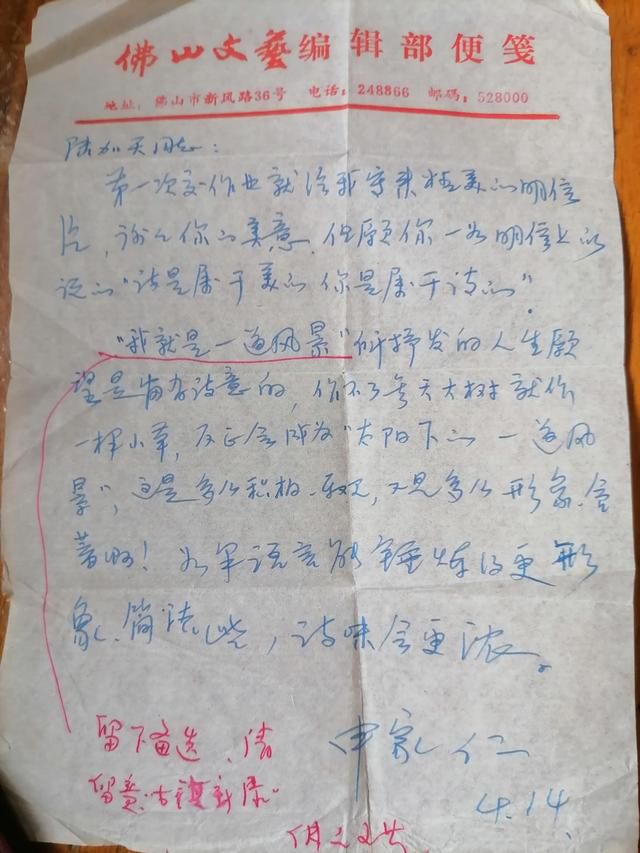 佛山文藝编辑部便笺
地址：佛山市新风路36号 电话：248866 邮码：528000
陆加天同志：
第一次交作业就给我寄来极美的明信
片，谢谢你的美意，但愿你一如明信上所
说的“诗是属于美的 你是属于诗的”
“我就是一道风景”所抒发的人生愿
望是富有诗意的，做不了参天大树就做
一棵小草，反正会成为“太阳下的一道风
景”，这是多么积极、乐观，又是多么形象、含
蓄啊！如果语言能锤炼得更形
象、简洁些，诗味会更浓。
申家仁
4.14.
留下备选，请
留意